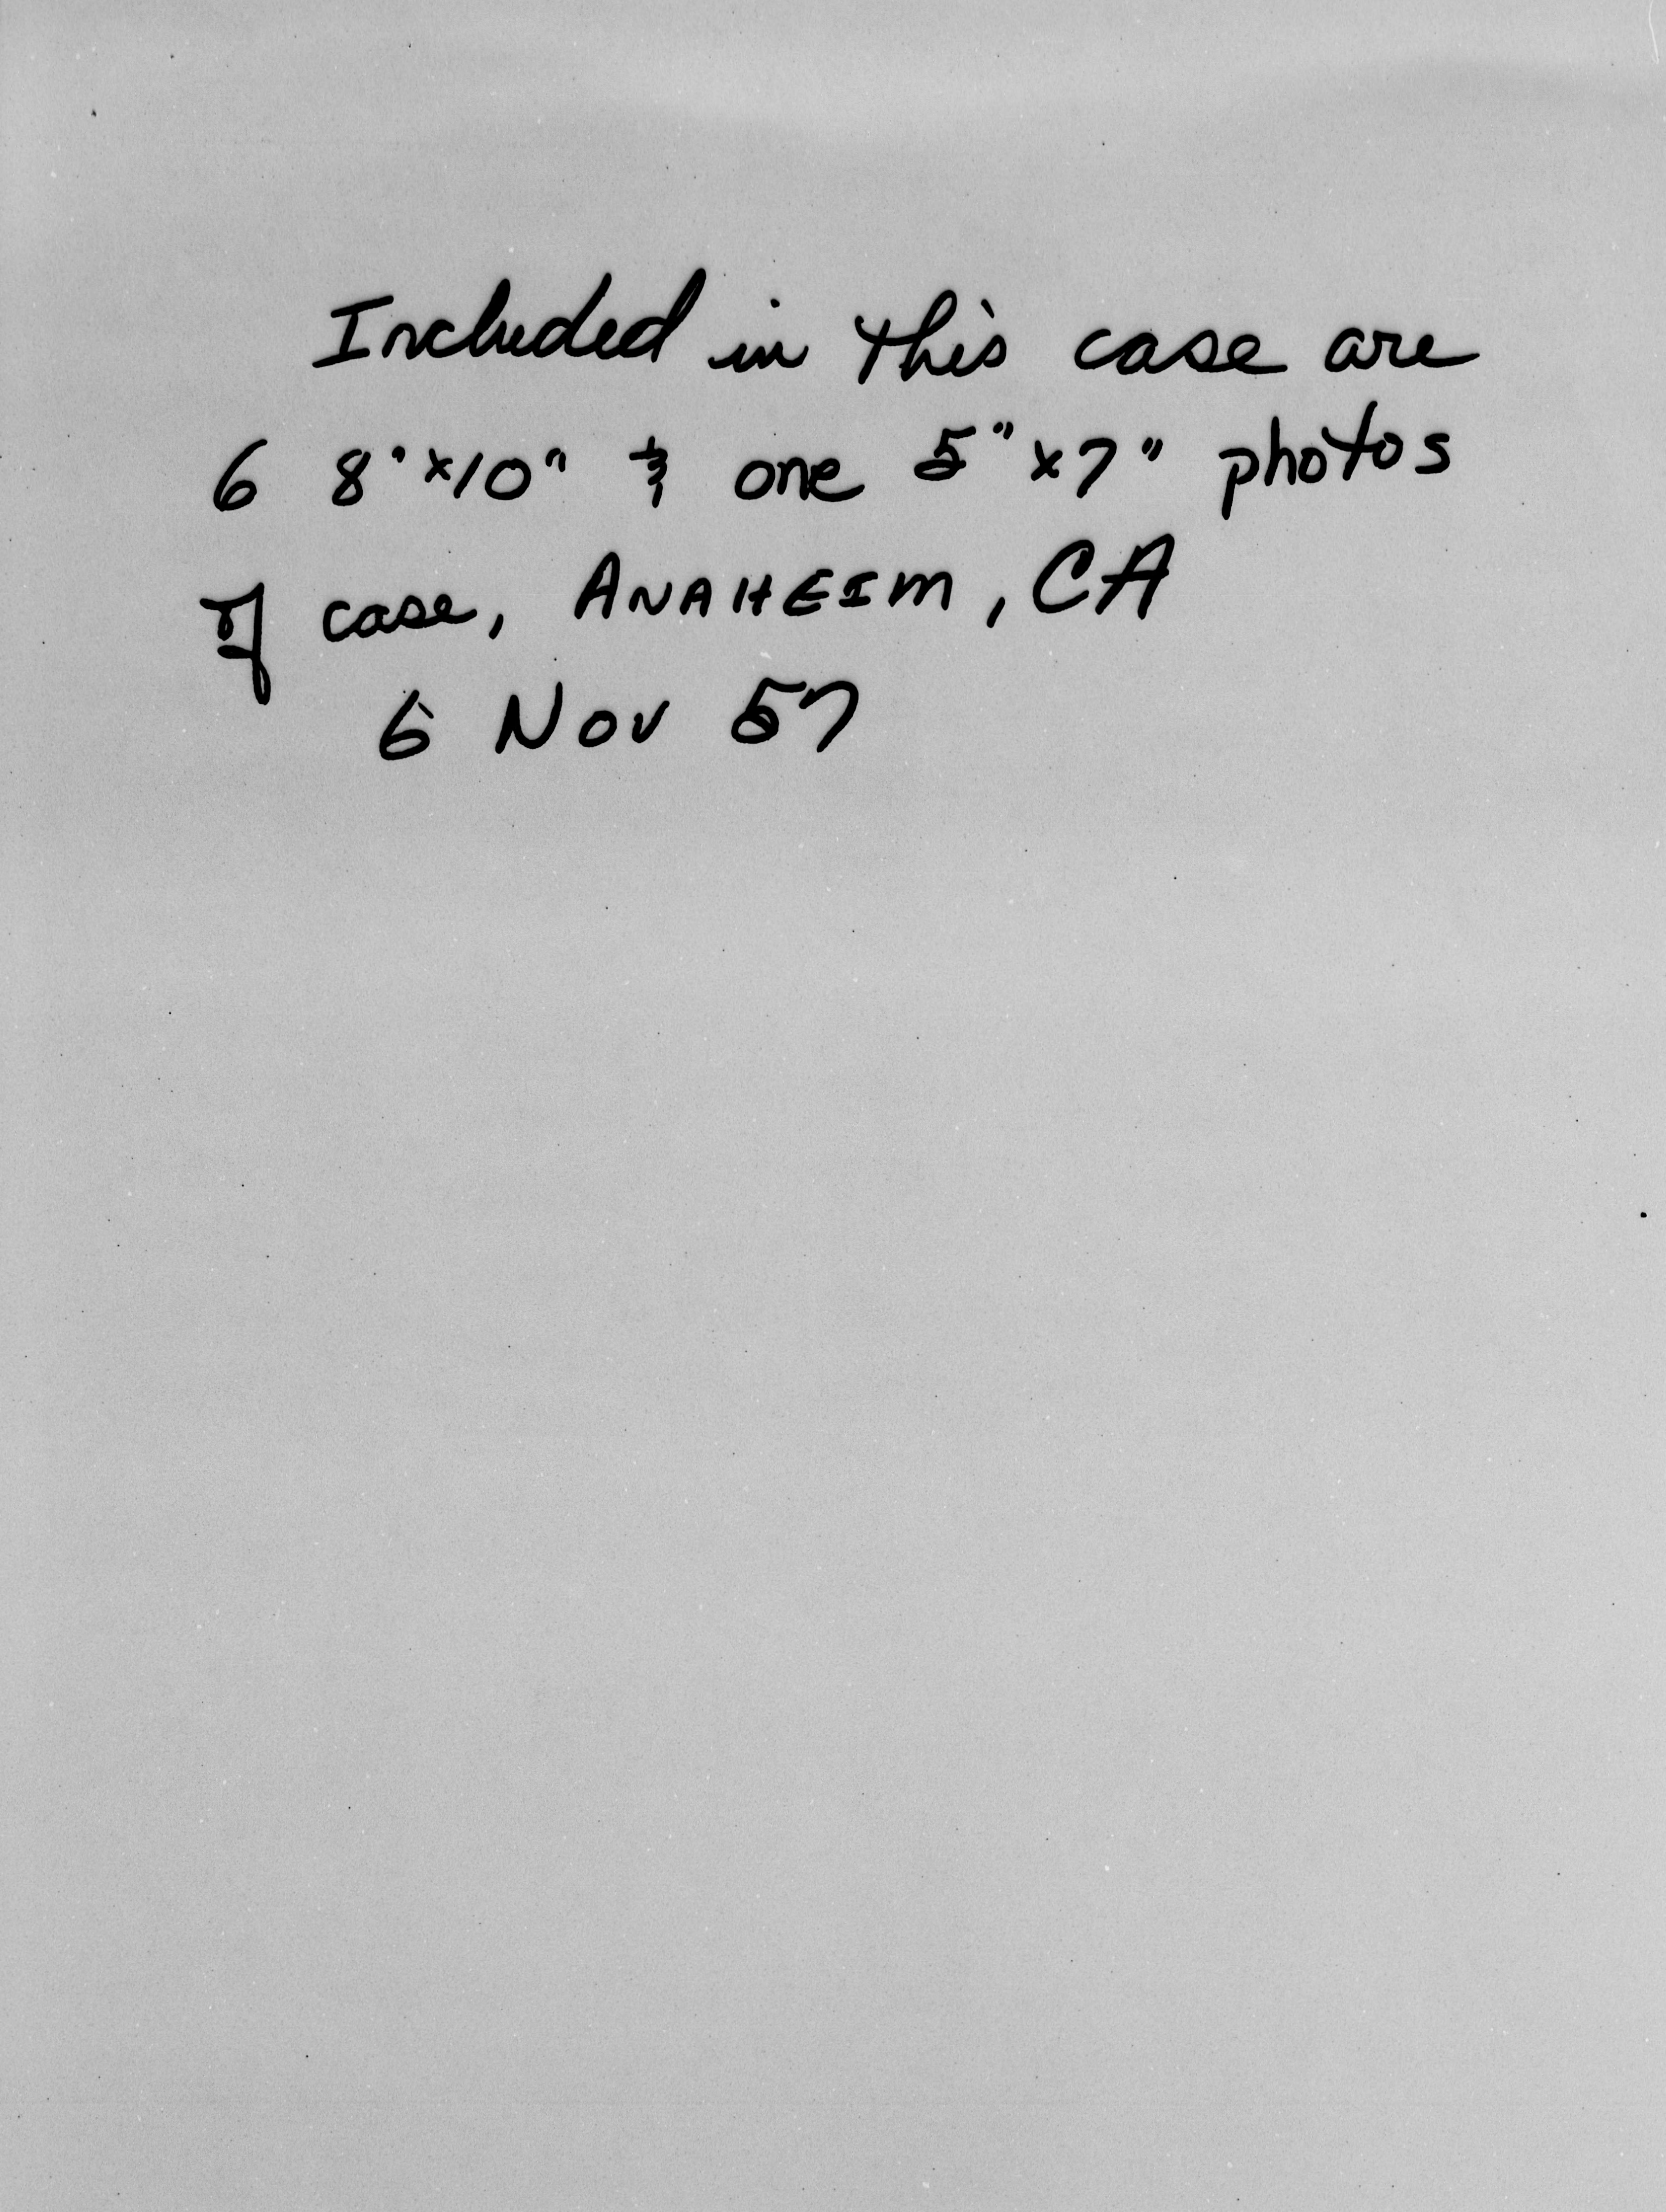 Included in this case are
6 8"x10" & one 5"x7" photos
of case, ANAHEIM, CA
6 Nov 57